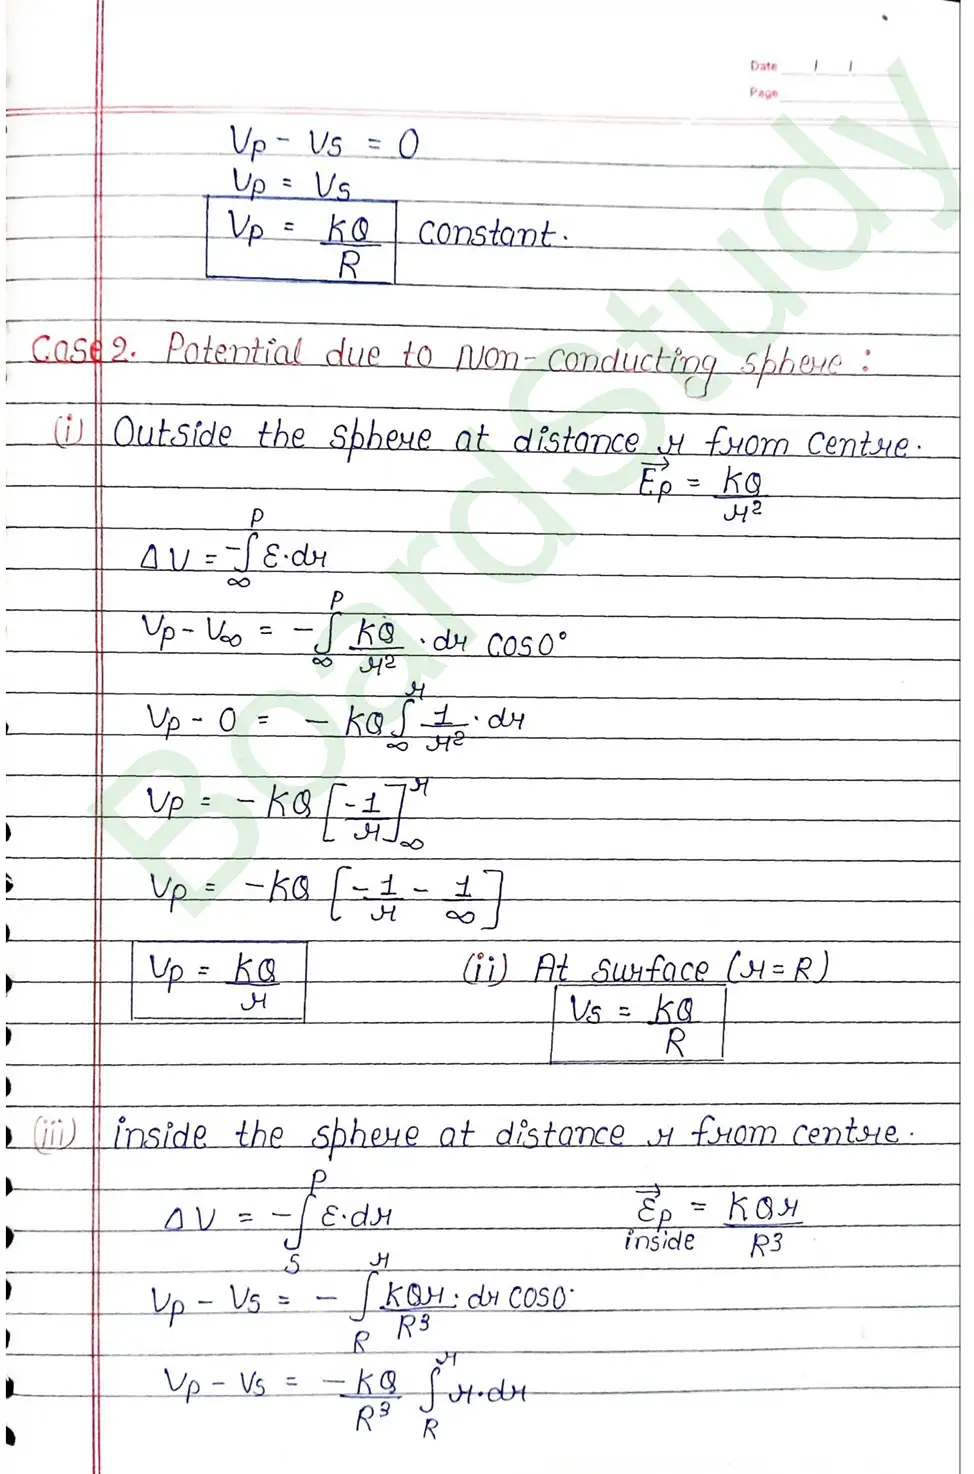 Date / /
Page
Vp - Vs = 0
Vp = Vs
Vp = KQ/R constant.
Case 2. Potential due to Non-conducting sphere :
(i) Outside the sphere at distance r from centre.
E⃗p = KQ/r²
ΔV = -∫_∞^P E·dr
Vp - V∞ = -∫_∞^P KQ/r² · dr cos0°
Vp - 0 = - KQ ∫_∞^r 1/r² · dr
Vp = - KQ [-1/r]_∞^r
Vp = -KQ [-1/r - 1/∞]
Vp = KQ/r (ii) At surface (r=R)
Vs = KQ/R
(iii) inside the sphere at distance r from centre.
ΔV = -∫_S^P E·dr E⃗p inside = KQr/R³
Vp - Vs = - ∫_R^r KQr/R³ · dr cos0°
Vp - Vs = -KQ/R³ ∫_R^r r·dr
BoardStudy